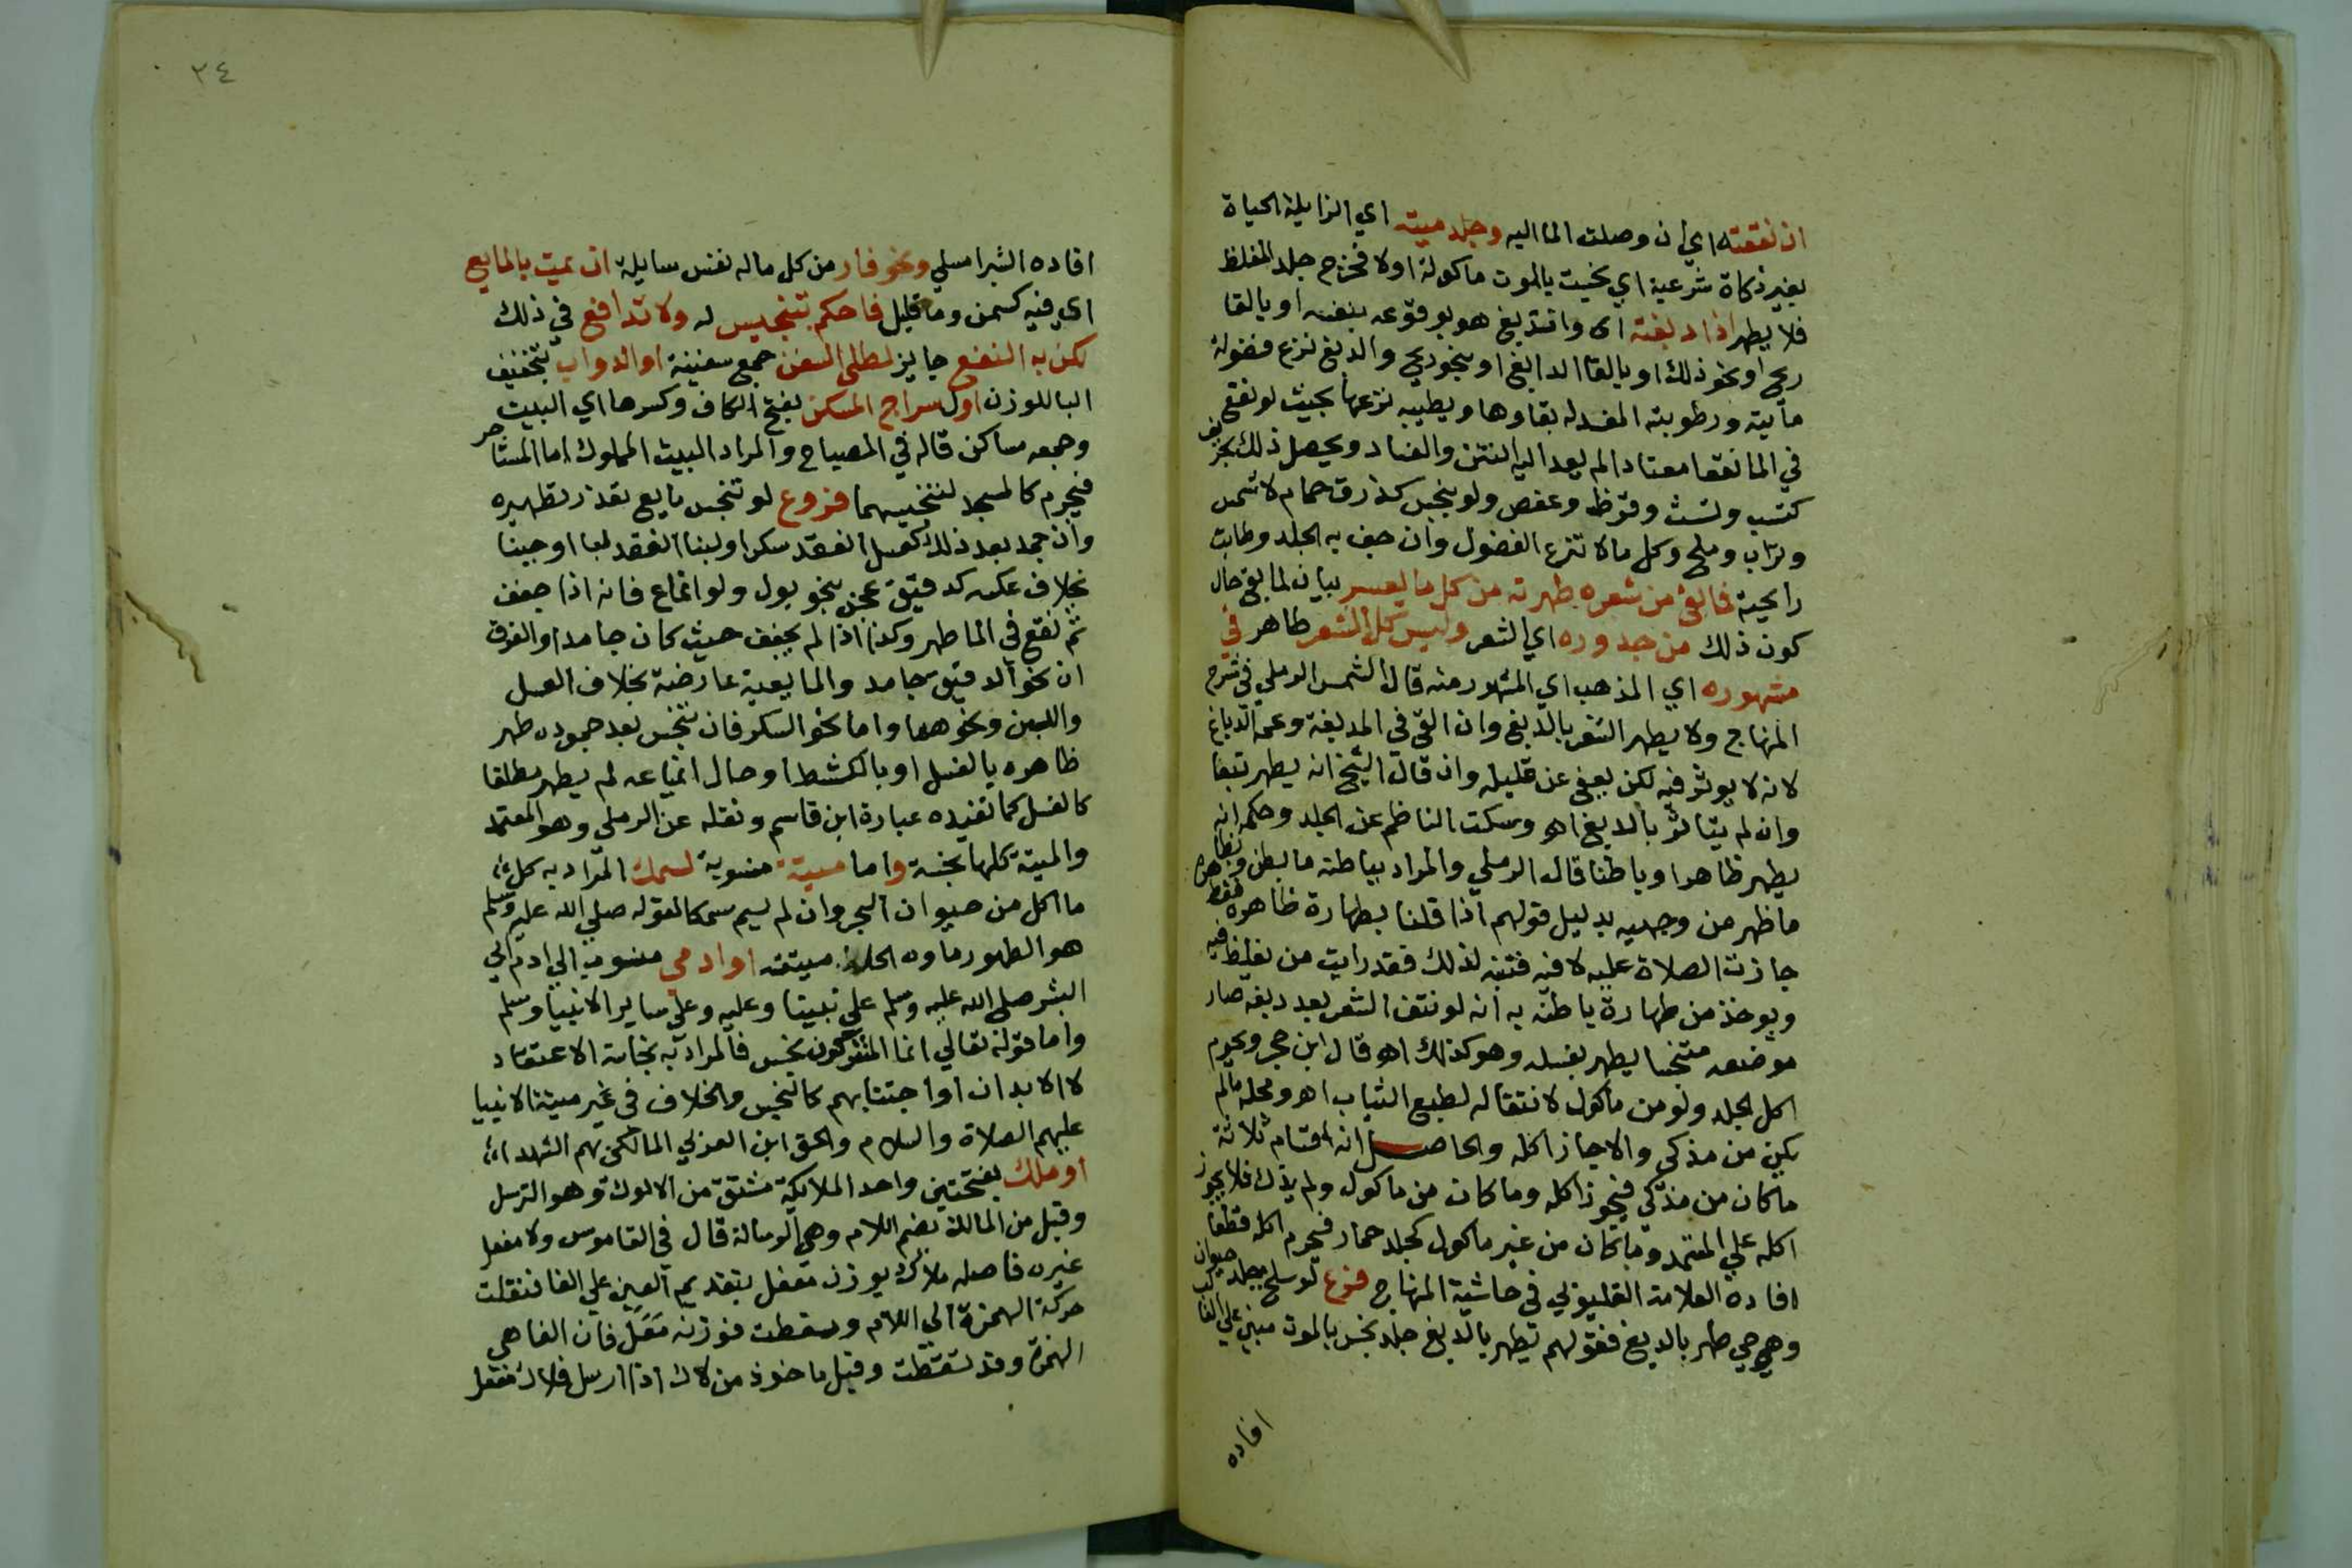 ان نقعته اي ان وصلت الما اليه وجلد ميتة اي الزايلة الحياة
بغير ذكاة شرعية اي نجست بالموت ماكولة اولا فخرج جلد المغلظ
فلا يطهر اذا دبغته اي واندبغ هو بوقوعه بنفسه او بالقا
ريح او نحو ذلك او بالقا الدابغ او بنحو ريح والدبغ نزع فضوله
مآيته ورطوبته المفسد له بقاوها ويطيبه نزعها بحيث لو نقع
في الما نقعا معتادا لم يعد اليه النتن والفساد ويحصل ذلك بحريف
كشب وشث وقرظ وعفص ولو بنجس كذرق حمام لا شمس
وتراب وملح وكل ما لا ينزع الفضول وان جف به الجلد وطابت
رايحته فما بقي من شعره طهرته من كل ما يعسر بيان لما بقي حال
كون ذلك من جدوره اي الشعر وليس كل الشعر طاهر في
مشهوره اي المذهب اي المشهور منه قال الشمس الرملي في شرح
المنهاج ولا يطهر الشعر بالدبغ وان القي في المدبغة وعمه الدباغ
لانه لا يوثر فيه لكن يعفى عن قليله وان قال الشيخ انه يطهر تبعا
وان لم يتاثر بالدبغ اهـ وسكت الناظم عن الجلد وحكمه انه
يطهر ظاهرا وباطنا قال الرملي والمراد بباطنه ما بطن وبظاهره
ما ظهر من وجهيه بدليل قولهم اذا قلنا بطهارة ظاهره فقط
جازت الصلاة عليه لا فيه فتنبه لذلك فقد رايت من يغلط فيه
ويوخذ من طهارة باطنه به انه لو نتف الشعر بعد دبغه صار
موضعه متنجسا يطهر بغسله وهو كذلك اهـ قال ابن حجر ويحرم
اكل الجلد ولو من ماكول لانتقاله لطبع الثياب اهـ ومحله مالم
يكن من مذكى والا جاز اكله والحاصل انه اقسام ثلاثة
ما كان من مذكي فيجوز اكله وما كان من ماكول ولم يذك فلا يجوز
اكله علي المعتمد وما كان من غير ماكول كجلد حمار فيحرم اكله قطعا
افاده العلامة القليوبي في حاشية المنهاج فرع لو سلخ جلد حيوان
وهو حي طهر بالدبغ فقولهم يطهر بالدبغ جلد نجس بالموت مبني علي الغالب
افاده
٢٤
افاده الشبراملسي ونحو فار من كل ماله نفس سايلة ان يمت بالمايع
اي فيه كسمن وما قليل فاحكم بتنجيس له ولا تدافع في ذلك
لكن به النفع جايز لطلي السفن جمع سفينة او الدواب بتخفيف
البا للوزن او لسراج المسكن بفتح الكاف وكسرها اي البيت
وجمعه مساكن قاله في المصباح والمراد البيت المملوك اما المستاجر
فيحرم كالمسجد لتنجيسهما فروع لو تنجس مايع تعذر تطهيره
وان جمد بعد ذلك كعسل انعقد سكرا ولبنا انعقد لبا او جبنا
بخلاف عكسه كدقيق عجن بنحو بول ولو انماع فانه اذا جفف
ثم نقع في الما طهر وكذا اذا لم يجفف حيث كان جامدا والفرق
ان نحو الدقيق جامد والمايعية عارضة بخلاف العسل
واللبن ونحوهما واما نحو السكر فان تنجس بعد جموده طهر
ظاهره بالغسل او بالكشط او حال انمياعه لم يطهر مطلقا
كالعسل كما تفيده عبارة ابن قاسم ونقله عن الرملي وهو المعتمد
والميتة كلها نجسة واما ميتة منسوبة لسمك المراد به كل
ما اكل من حيوان البحر وان لم يسم سمكا لقوله صلي الله عليه وسلم
هو الطهور ماوه الحل ميتته او ادمي منسوب الي ادم ابي
البشر صلي الله عليه وسلم علي نبينا وعليه وعلي ساير الانبيا وسلم
واما قوله تعالي انما المشركون نجس فالمراد به نجاسة الاعتقاد
لا الابدان او اجتنابهم كالنجس والخلاف في غير ميتة الانبيا
عليهم الصلاة والسلام والحق ابن العربي المالكي بهم الشهدا
او ملك بفتحتين واحد الملايكة مشتق من الالوكة وهو الترسل
وقيل من المالكة بضم اللام وهي الرسالة قال في القاموس ولا مفعل
غيره فاصله ملاك بوزن معفل بتقديم العين علي الفا فنقلت
حركة الهمزة الي اللام وسقطت فوزنه مَعَل فان الفا هي
الهمزة وقد سقطت وقيل ماخوذ من لاك اذا ارسل فملاك مفعل